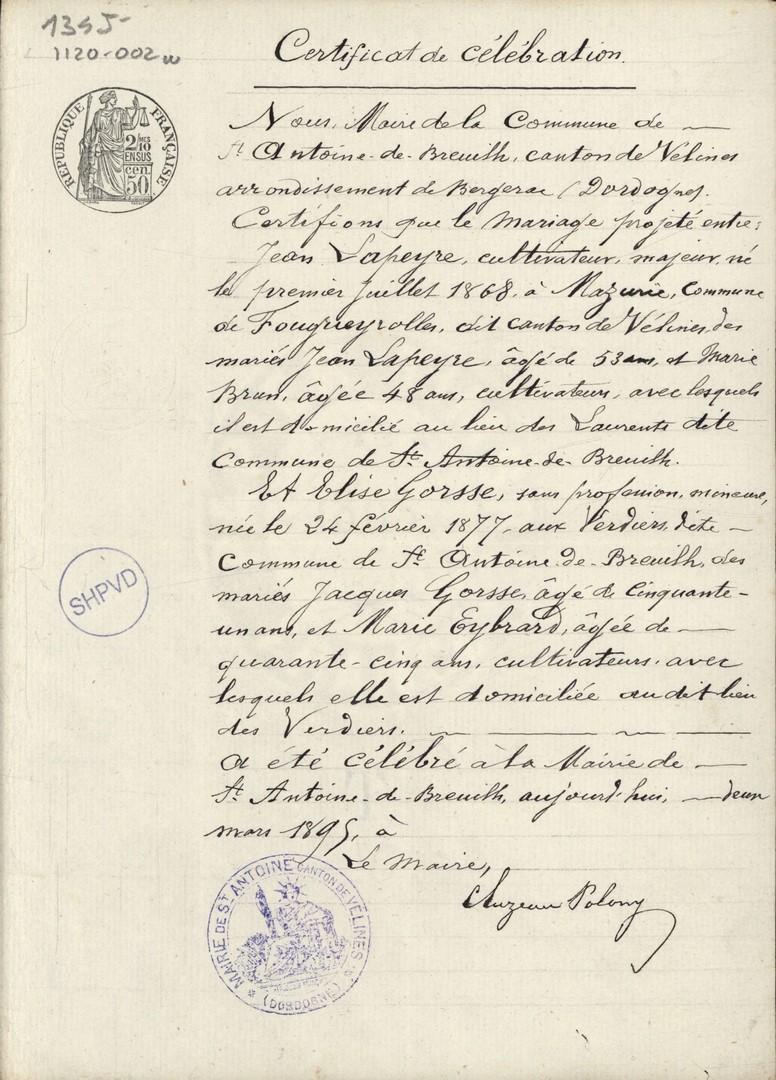 1395
1120-002 w
Certificat de célébration.
RÉPUBLIQUE FRANÇAISE
2/10
EN SUS
50 cen.
Nous, Maire de la Commune de —
St. Antoine-de-Breuilh, canton de Vélines
arrondissement de Bergerac (Dordogne).
Certifions que le mariage projeté entre:
Jean Lapeyre, cultivateur, majeur, né
le premier Juillet 1868, à Mazurie, Commune
de Fougueyrolles, dit canton de Vélines, des
mariés Jean Lapeyre, âgé de 53 ans, et Marie
Brun, âgée 48 ans, cultivateurs, avec lesquels
il est domicilié au lieu des Laurents dite
Commune de St. Antoine-de-Breuilh.
Et Elise Gorsse, sans profession, mineure,
née le 24 février 1877, aux Verdiers, dite —
Commune de St. Antoine-de-Breuilh, des
mariés Jacques Gorsse, âgé de Cinquante-
un ans, et Marie Eybrard, âgée de —
quarante-cinq ans, cultivateurs, avec
lesquels elle est domiciliée au dit lieu
des Verdiers. — — — —
SHPVD
a été célébré à la Mairie de —
St. Antoine-de-Breuilh, aujourd'hui, — deux
mars 1895, à
Le Maire,
MAIRIE DE ST ANTOINE CANTON DE VÉLINES
(DORDOGNE)